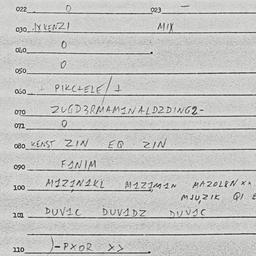 022 0 023 —
030 MIX
040 0
050 0
060 PIKCHELE/1
070 ZUGD3RMAM1NALDZDING2-
071 0
080 KENST ZIN EQ ZIN
090 FINIM
100 M1Z1N1KL M1Z1M1N MAZOLEN xx
MIUZIK QI
101 DUV1C DUV1DZ DUV1C
110 )-PXOR XX